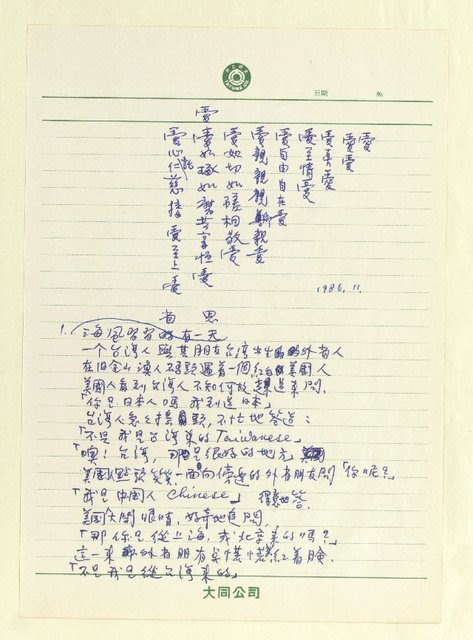 日期 №
愛
愛愛
愛愛
愛至愛
愛至情愛
愛自由自在愛
愛親親親親愛
愛如切如磋相敬愛
愛情如琢如磨共享恒愛
愛心仁慈接愛至上愛
1986. 11.
省思
1. 海風習習的有一天
一个台灣人與其朋友台灣出世的外省人
在旧金山漁人碼頭遇着一個紅白美國人
美國人看到台灣人不知何故趨過來問.
「你是日本人嗎 我到過日本」
台灣人急急搖頭, 不忙地答道:
「不是 我是台灣來的 Taiwanese」
「噢! 台灣, 那是很好的地方
美國人點頭笑笑一面向傍邊的外省朋友問「你呢?」
「我是中國人 Chinese」 得意地答.
美國人大開眼睛, 好奇地追問
「那 你是從上海, 或北京來的嗎?」
這一來 外省朋友臉紅着臉.
「不是 我是從台灣來的」
大同公司